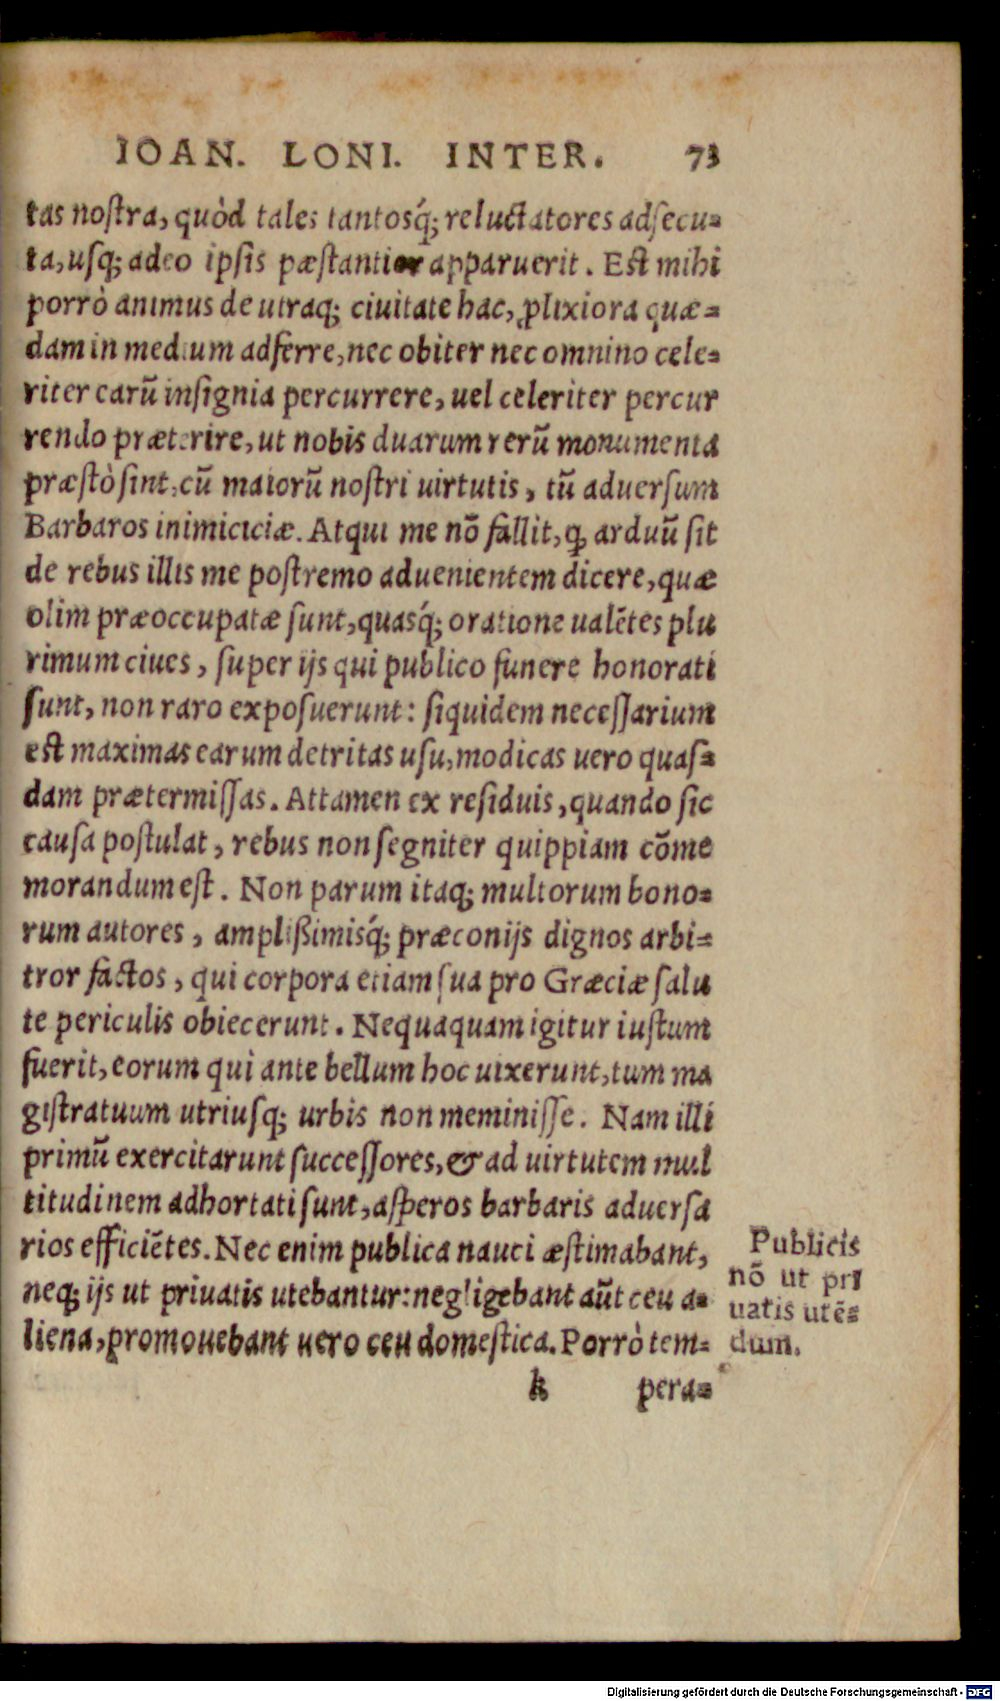 IOAN. LONI. INTER. 73
tas noſtra, quòd tales tantosq́; reluctatores adſecu-
ta, uſq; adeo ipſis pæſtantior apparuerit. Eſt mihi
porrò animus de utraq; ciuitate hac, ꝓlixiora quæ-
dam in medium adferre, nec obiter nec omnino cele-
riter earũ inſignia percurrere, uel celeriter percur
rendo præterire, ut nobis duarum rerũ monumenta
præſtò ſint, cũ maiorũ noſtri uirtutis, tũ aduerſum
Barbaros inimiciciæ. Atqui me nõ fallit, ꝙ arduũ ſit
de rebus illis me poſtremo aduenientem dicere, quæ
olim præoccupatæ ſunt, quasq́; oratione ualẽtes plu
rimum ciues, ſuper ijs qui publico funere honorati
ſunt, non raro expoſuerunt: ſiquidem neceſſarium
eſt maximas earum detritas uſu, modicas uero quaſ-
dam prætermiſſas. Attamen ex reſiduis, quando ſic
cauſa poſtulat, rebus non ſegniter quippiam cõme
morandum eſt. Non parum itaq; multorum bono-
rum autores, amplißimisq́; præconijs dignos arbi-
tror factos, qui corpora etiam ſua pro Græciæ ſalu
te periculis obiecerunt. Nequaquam igitur iuſtum
fuerit, eorum qui ante bellum hoc uixerunt, tum ma
giſtratuum utriuſq; urbis non meminiſſe. Nam illi
primũ exercitarunt ſucceſſores, & ad uirtutem mul
titudinem adhortati ſunt, aſperos barbaris aduerſa
rios efficiẽtes. Nec enim publica nauci æſtimabant,
neq; ijs ut priuatis utebantur: negligebant aũt ceu a-
liena, promouebant uero ceu domeſtica. Porrò tem-
k pera-
Publicis
nõ ut pri
uatis utẽ-
dum.
Digitalisierung gefördert durch die Deutsche Forschungsgemeinschaft - DFG